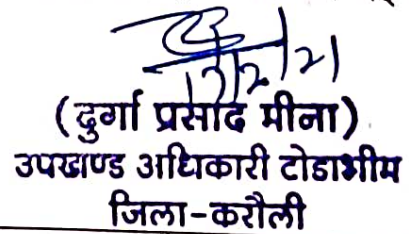 (दुर्गा प्रसाद मीना)
उपखण्ड अधिकारी टोडाभीम
जिला-करौली